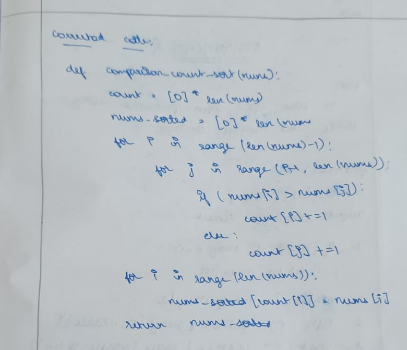 corrected code:
def comparison count-sort(nums):
count = [0] * len(nums)
nums-sorted = [0] * len(nums
for i in range (len(nums)-1):
for j in range (i+1, len(nums)):
if (nums[i] > nums[j]):
count [i] +=1
else:
count [j] +=1
for i in range (len(nums)):
nums-sorted [count[i]] = nums[i]
return nums-sorted